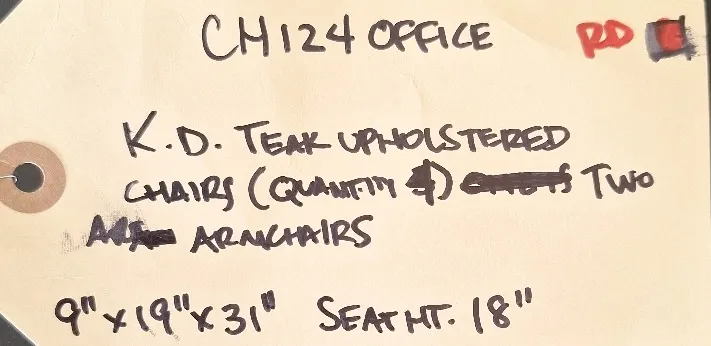 CH124 OFFICE RD
K.D. TEAK UPHOLSTERED
CHAIRS (QUANTITY 4) TWO
ARMCHAIRS
9" x 19" x 31" SEAT HT. 18"